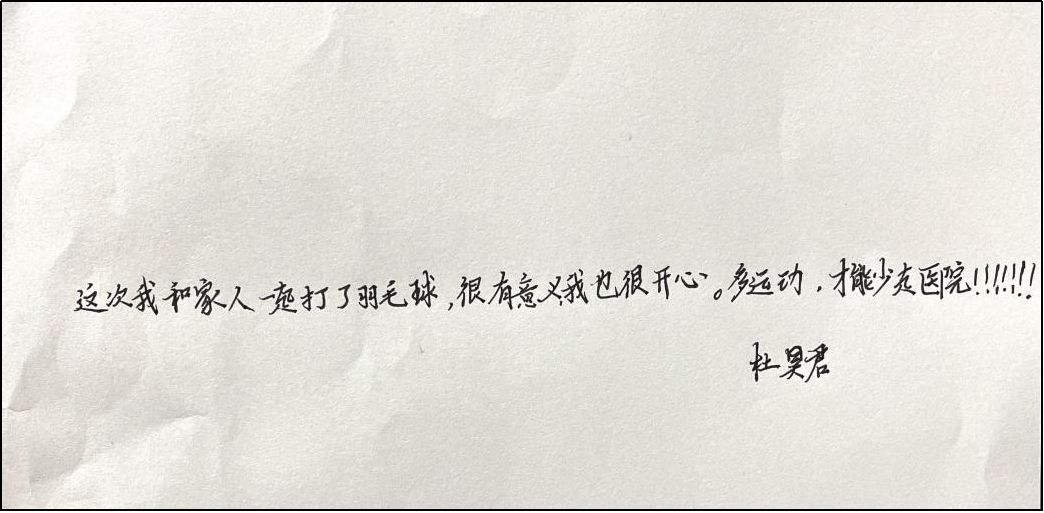 这次我和家人一起打了羽毛球,很有意义我也很开心。多运动,才能少去医院!!!!!!!
杜昊君